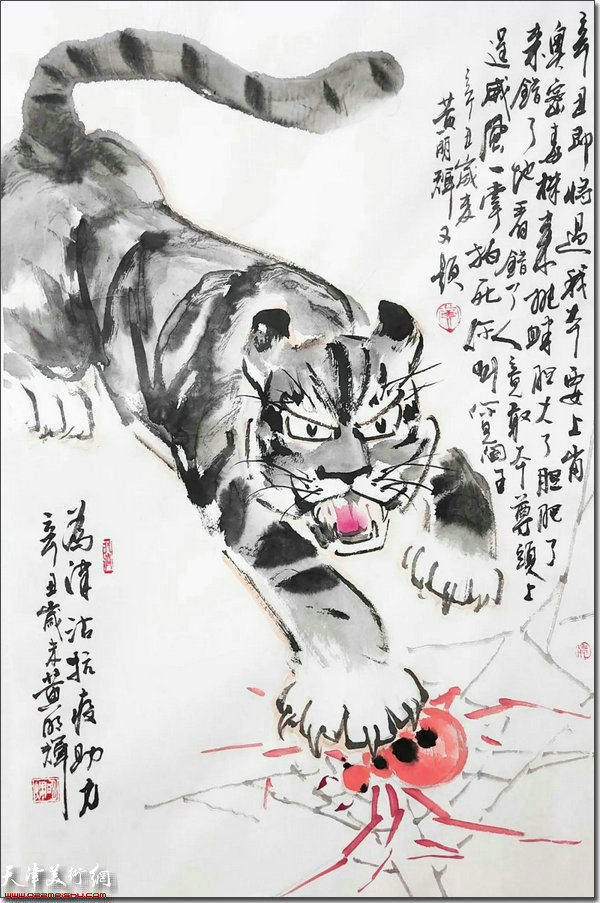 辛丑即将过我本要上岗
奥密毒株
来错了地看错了人竟敢本尊头上
逞威风一掌拍死你叫你见阎王
辛丑岁末
黄明辉又题
为津沽抗疫助力
辛丑岁末黄明辉
天津美术网